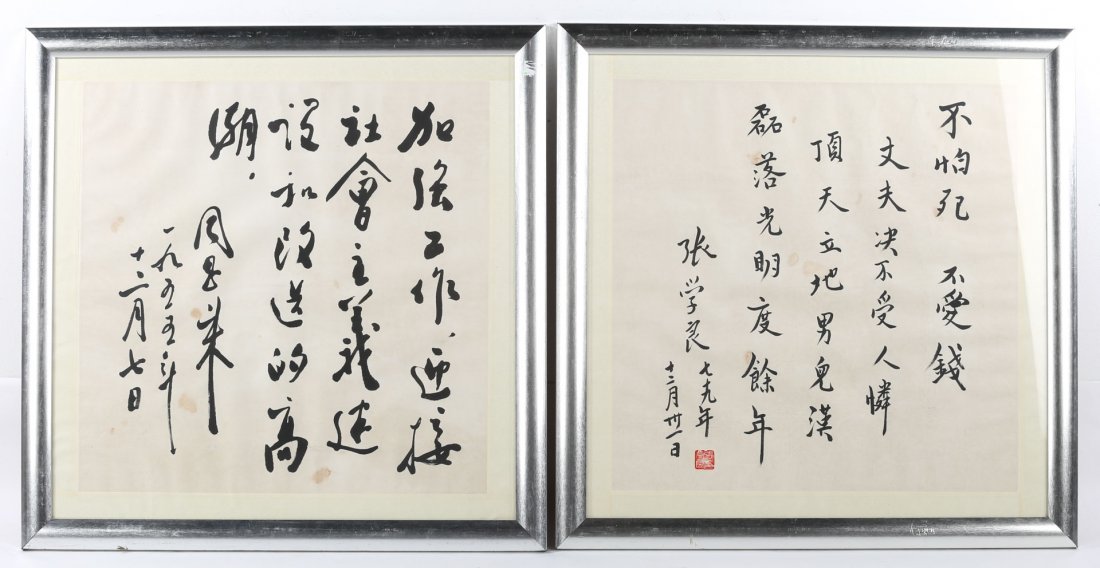 加强工作、迎接
社會主義建
设和改造的高
潮.
周恩来
一九五五年
十二月七日
不怕死 不愛錢
丈夫决不受人憐
頂天立地男兒漢
磊落光明度餘年
张学良
七九年
十二月卅一日